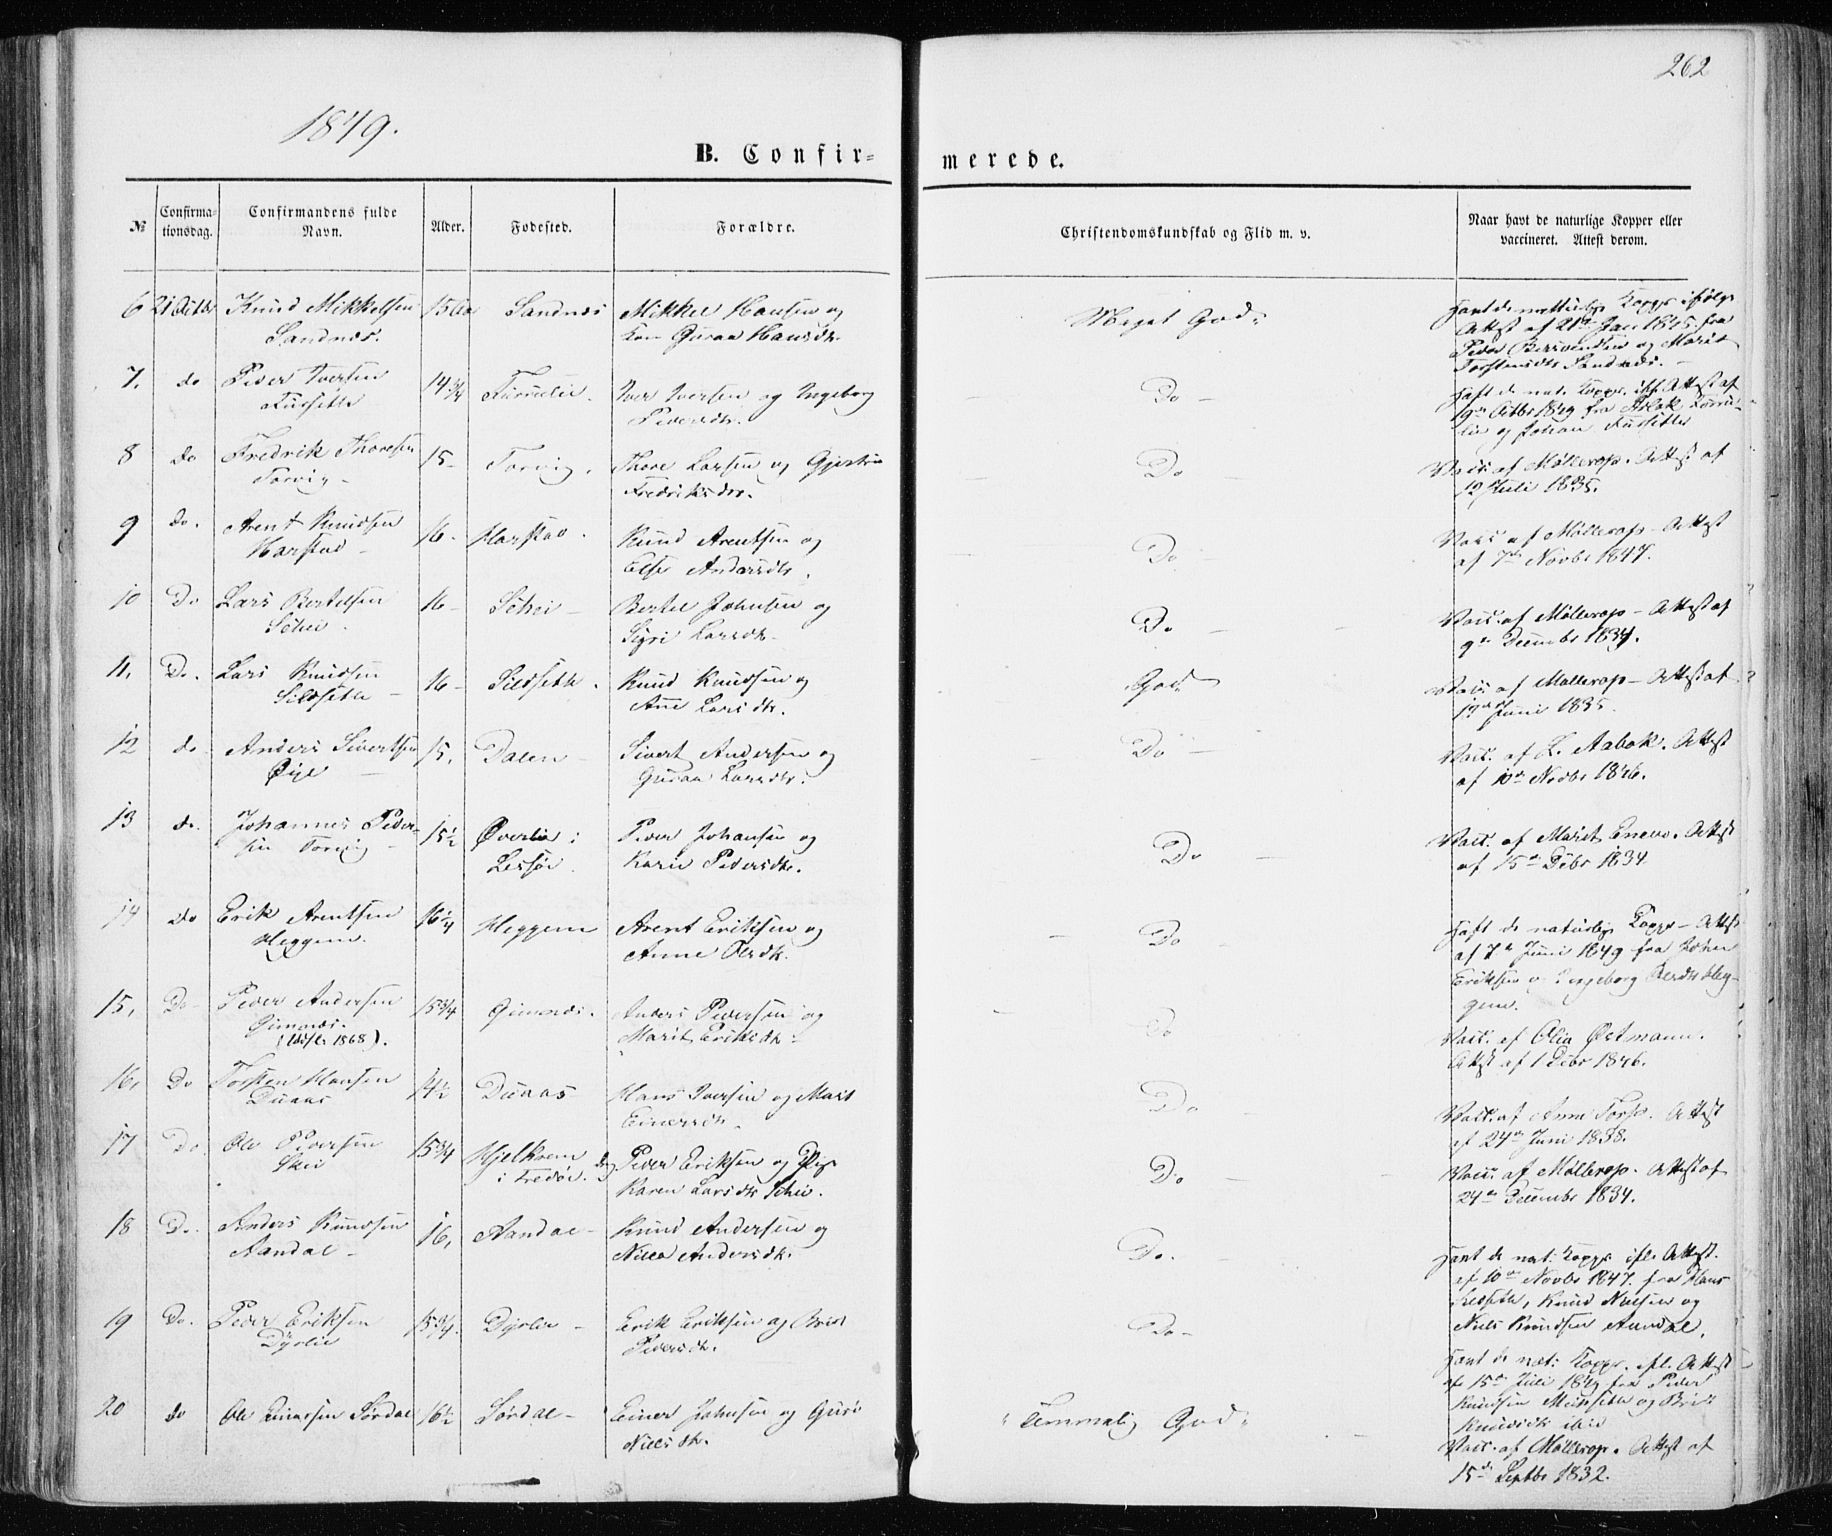 262
1849.
B. Confir=
merede.
№
Confirma-
tionsdag.
Confirmandens fulde
Navn.
Alder.
Fødested.
Forældre.
Christendomskundskab og Flid m. v.
Naar havt de naturlige Kopper eller
vaccineret. Attest derom.
6 21 Octbr Knud Mikkelsen 15 Sandnes Mikkel Hansen og Meget God
Sandnes. Kone Guraa Hansdtr.
Havt de naturlige Kopper ifølge
Attest af 21de Jan 1845 fra
Peder og Marit
Torstensdtr Sandnes.
7. do Peder Iversen 14 3/4 Furulie. Iver Iversen og Ingeborg Do
Fursethe Pedersdtr.
Haft de nat. Kopper. ifl. Attest af
19de Octbr 1849 fra Aslak Furru-
lie og Johan Fursethe
8 Do Fredrik Thoresen 15 Torvig. Thore Larsen og Gjertru Do
Torvig Fredriksdtr.
Vacc. af Møllerop. Attest af
12 Juli 1835.
9 Do. Arent Knudsen 16 Harstad. Knud Arentsen og Do
Harstad Else Andersdtr.
Vacc af Møllerop - Attest
af 7de Novbr 1847.
10 Do Lars Bertelsen 16 Schei Bertel Johnsen og Do
Schei Sigri Larsdtr.
Vacc. af Møllerop - Attest af
9de Decembr 1834.
11. Do. Lars Knudsen 16 Sildsethe. Knud Knudsen og God
Sildsethe Ane Larsdtr.
Vacc. af Møllerop - Attest af
19de Juni 1835.
12 do. Anders Sivertsen 15. Dalen Sivert Andersen og Do
Øie Guraa Larsdtr.
Vacc. af L. Aabok. Attest
af 10de Novbr 1846.
13 do. Johannes Peder- 15 1/2 Øverlie i Peder Johansen og Do
sen Torvig Lessøe. Karen Pedersdtr.
Vacc. af Marit Enevo. Attest
af 15de Debr 1834
14 do Erik Arentsen 16 1/4 Heggem Arent Eriksen og Do
Heggem. Anne Olsdtr.
Haft de naturlige Kopper - Attest
af 7de Juni 1849 fra John
Eriksen og Ingeborg Heg-
gem.
15. Do Peder Andersen 15 3/4 Gimnæs. Anders Pedersen og Do
Gimnæs. Marit Eriksdtr.
1868).
Vacc. af Olia Østmann.
Attest af 1 Debr 1846.
16. Do Torsten Hansen 14 1/2 Duaas Hans Iversen og Marit Do
Duaas Einersdtr.
Vacc. af Anne Torp. Attest
af 24de Juni 1838.
17 Do Ole Pedersen 15 3/4 Hjelkrem Peder Eriksen og Pige Do
Skei i Fredøe. Karen Larsdtr Schei.
Vacc. af Møllerop. Attest af
24de Decembr 1834.
18 Do. Anders Knudsen 16. Aandal Knud Andersen og Do.
Aandal Andersdtr.
Havt de nat. Kopper ifl. Attest.
af 10de Novbr 1847. fra Hans
Knud Nielsen og
Niels Knudsen Aandal.
19 Do. Peder Eriksen 15 3/4. Dyrlie Erik Eriksen og Brit Do
Dyrlie Pedersdtr.
Havt de nat. Kopper. ifl. Attest
af 15de Juli 1849 fra Peder
Knudsen og Brit
Knudsdtr ibid
20 do Ole Einersen Sørdal 16 1/2 Sørdal Einer Johnsen og Guri Temmelig God
Nielsdtr.
Vacc. af Møllerop. Attest af
15de Septbr 1832.